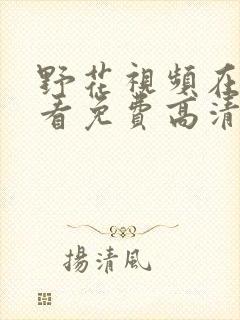 野花視頻在
看免費高清
揚清風